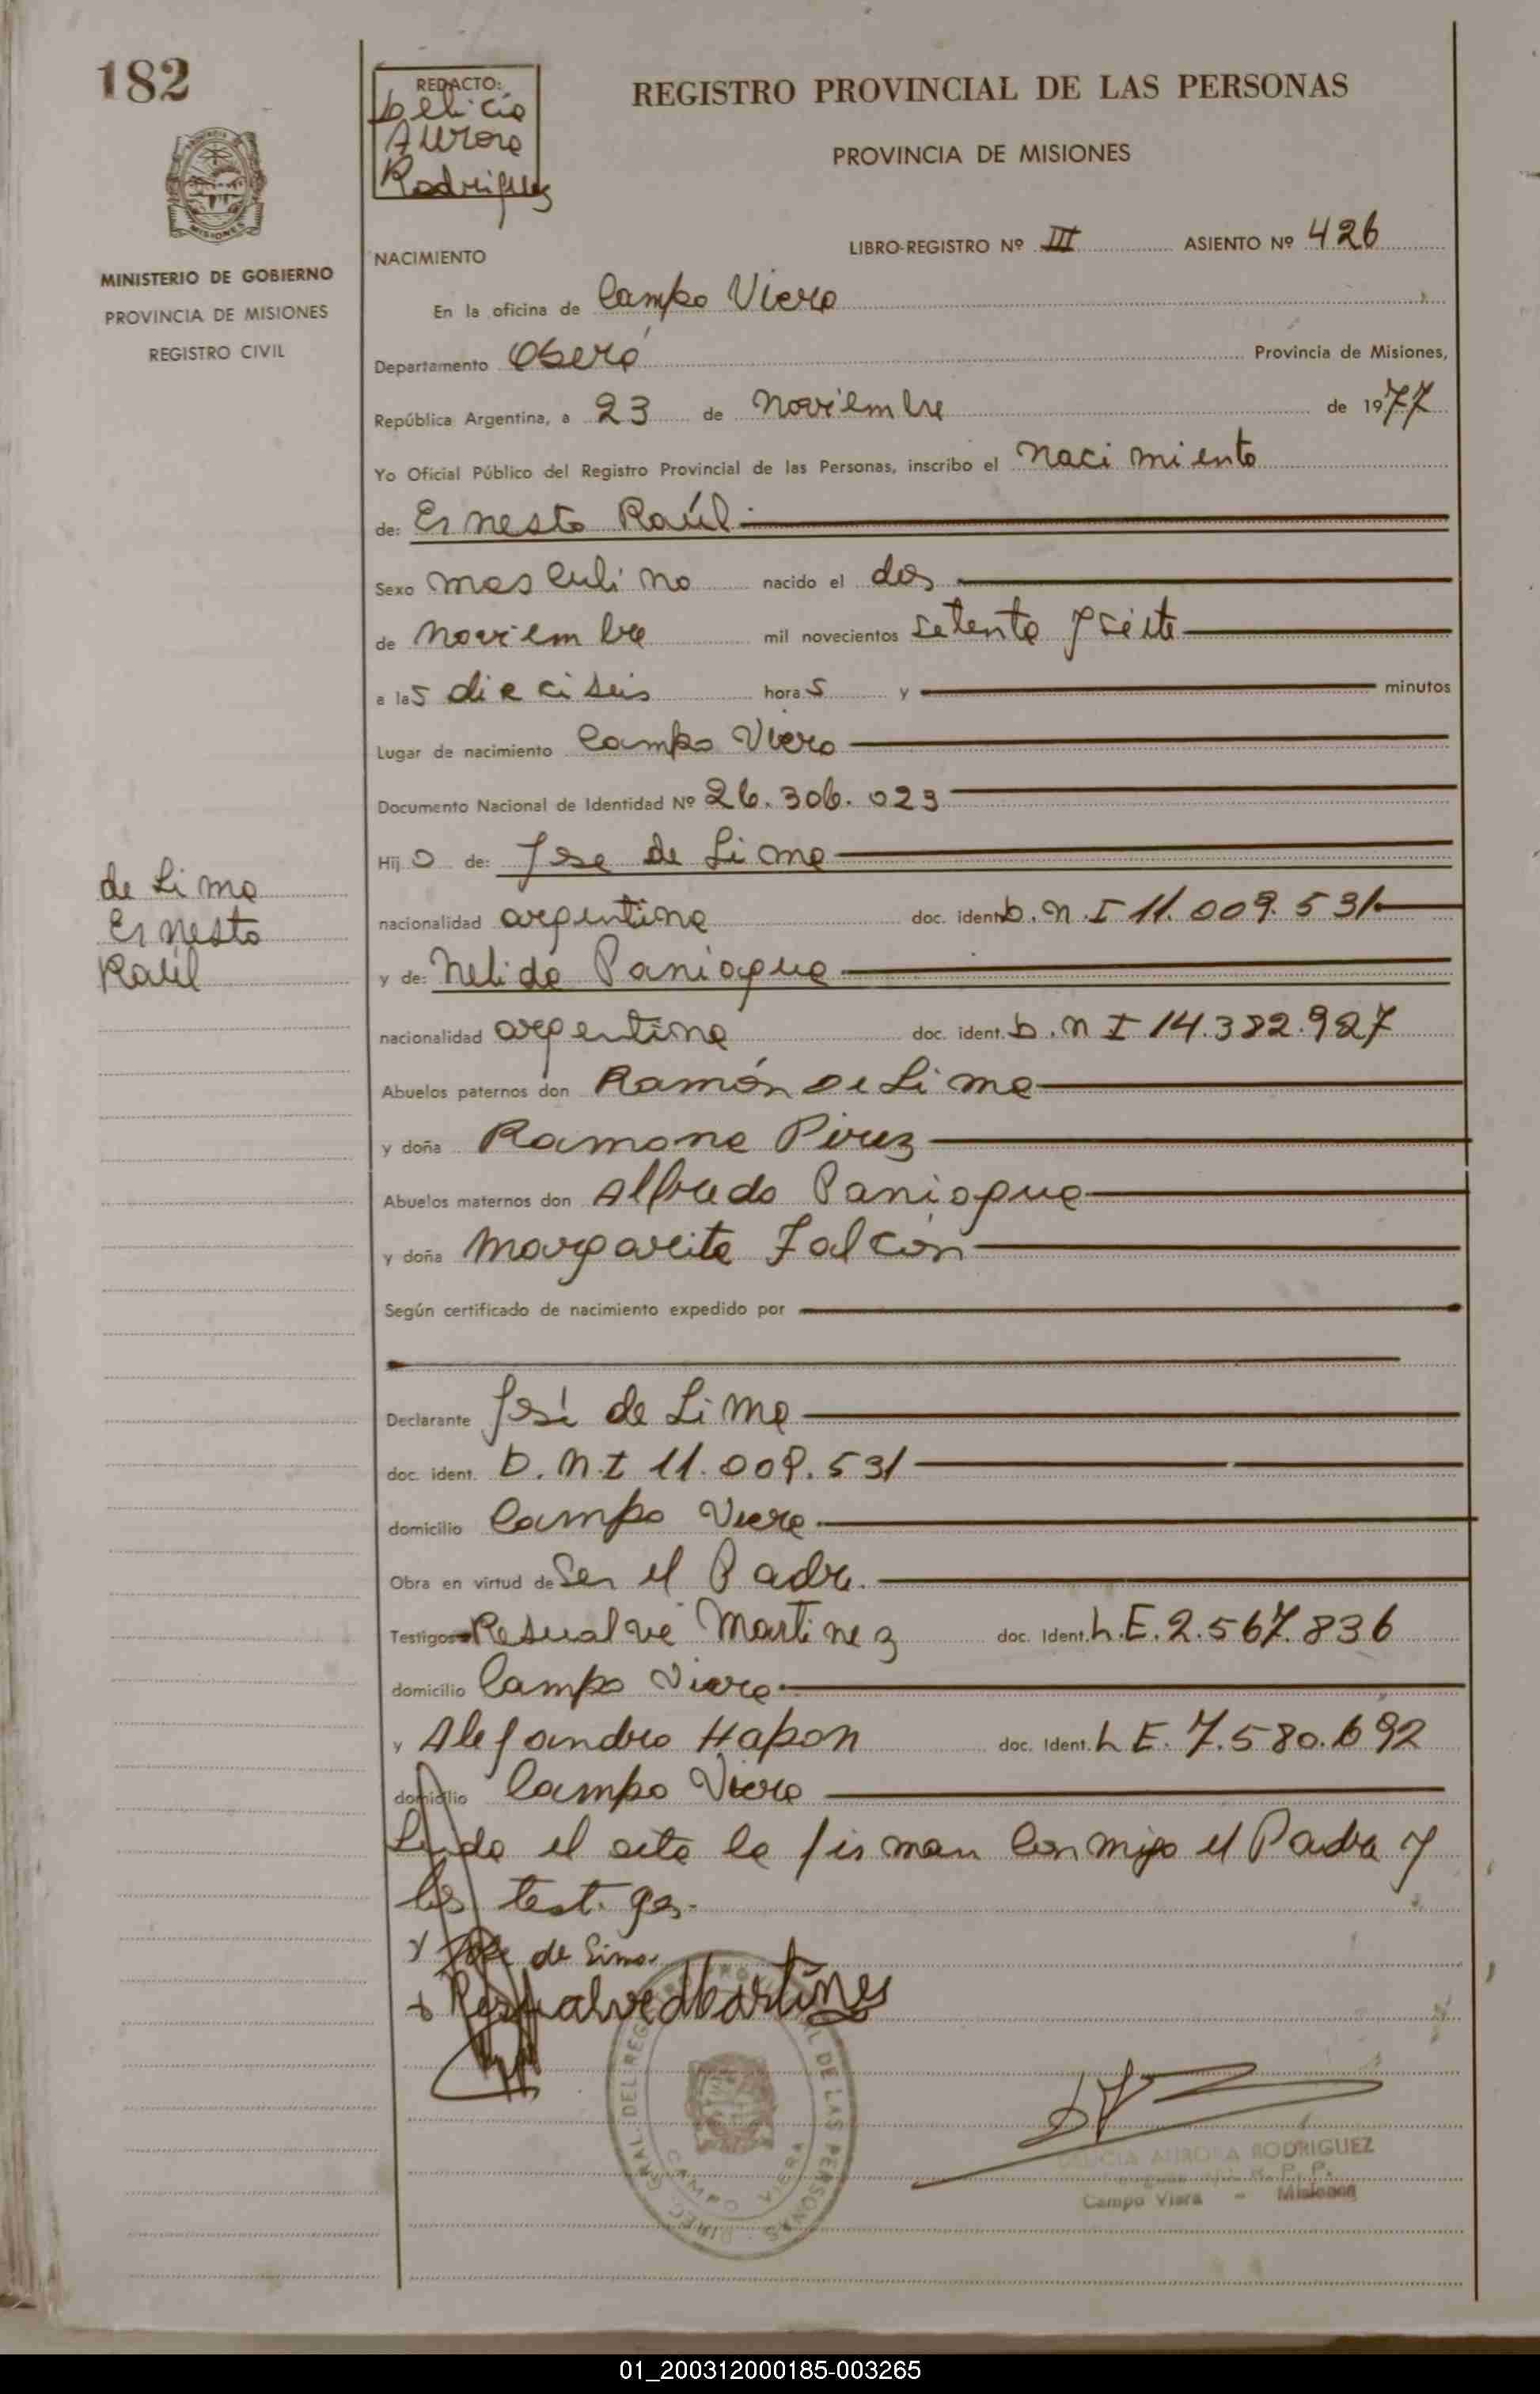 182
REDACTO:
Delicia
Aurora
Rodriguez
REGISTRO PROVINCIAL DE LAS PERSONAS
PROVINCIA DE MISIONES
MISIONES
MINISTERIO DE GOBIERNO
PROVINCIA DE MISIONES
REGISTRO CIVIL
LIBRO-REGISTRO Nº III ASIENTO Nº 426
NACIMIENTO
En la oficina de Campo Viera
Departamento Oberá Provincia de Misiones,
República Argentina, a 23 de Noviembre de 1977
Yo Oficial Público del Registro Provincial de las Personas, inscribo el Nacimiento
de: Ernesto Raúl
Sexo masculino nacido el dos
de Noviembre mil novecientos setenta y siete
a las dieciseis horas y minutos
Lugar de nacimiento Campo Viera
Documento Nacional de Identidad Nº 26.306.023
Hijo de: Jose de Lima
de Lima
Ernesto
Raúl
nacionalidad argentina doc. ident. D.N.I 11.009.531
y de: Nelida Paniagua
nacionalidad argentina doc. ident. D.N.I 14.382.927
Abuelos paternos don Ramón de Lima
y doña Ramona Pirez
Abuelos maternos don Alfredo Paniagua
y doña Margarita Falcón
Según certificado de nacimiento expedido por
Declarante José de Lima
doc. ident. D.N.I 11.009.531
domicilio Campo Viera
Obra en virtud de Ser el Padre.
Testigos Resualve Martinez doc. Ident. L.E. 2.567.836
domicilio Campo Viera
y Alejandro Hapon doc. Ident. L E. 7.580.692
domicilio Campo Viera
Leida el acta la firman conmigo el Padre y
los testigos.
x Jose de Lima
x Resualve Martines
DIREC. GRAL. DEL REG. DE LAS PERSONAS
CAMPO VIERA
DELICIA AURORA RODRIGUEZ
R. P. P.
Campo Viera - Misiones
01_200312000185-003265